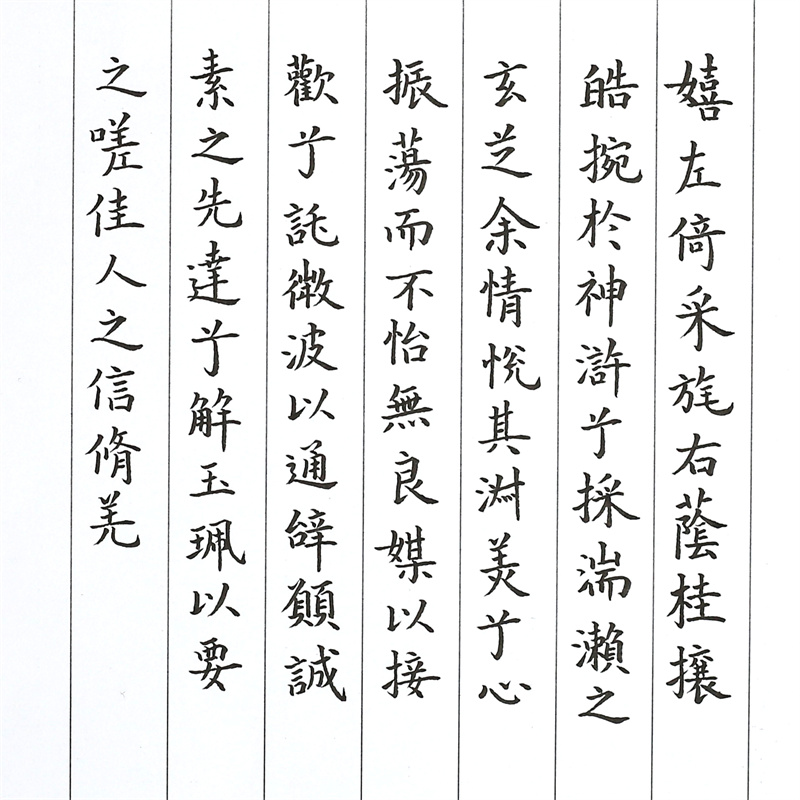 嬉左倚采旄右蔭桂攘
皓捥於神滸兮採湍瀨之
玄芝余情悅其淑美兮心
振蕩而不怡無良媒以接
歡兮託微波以通辭願誠
素之先達兮解玉珮以要
之嗟佳人之信脩羌